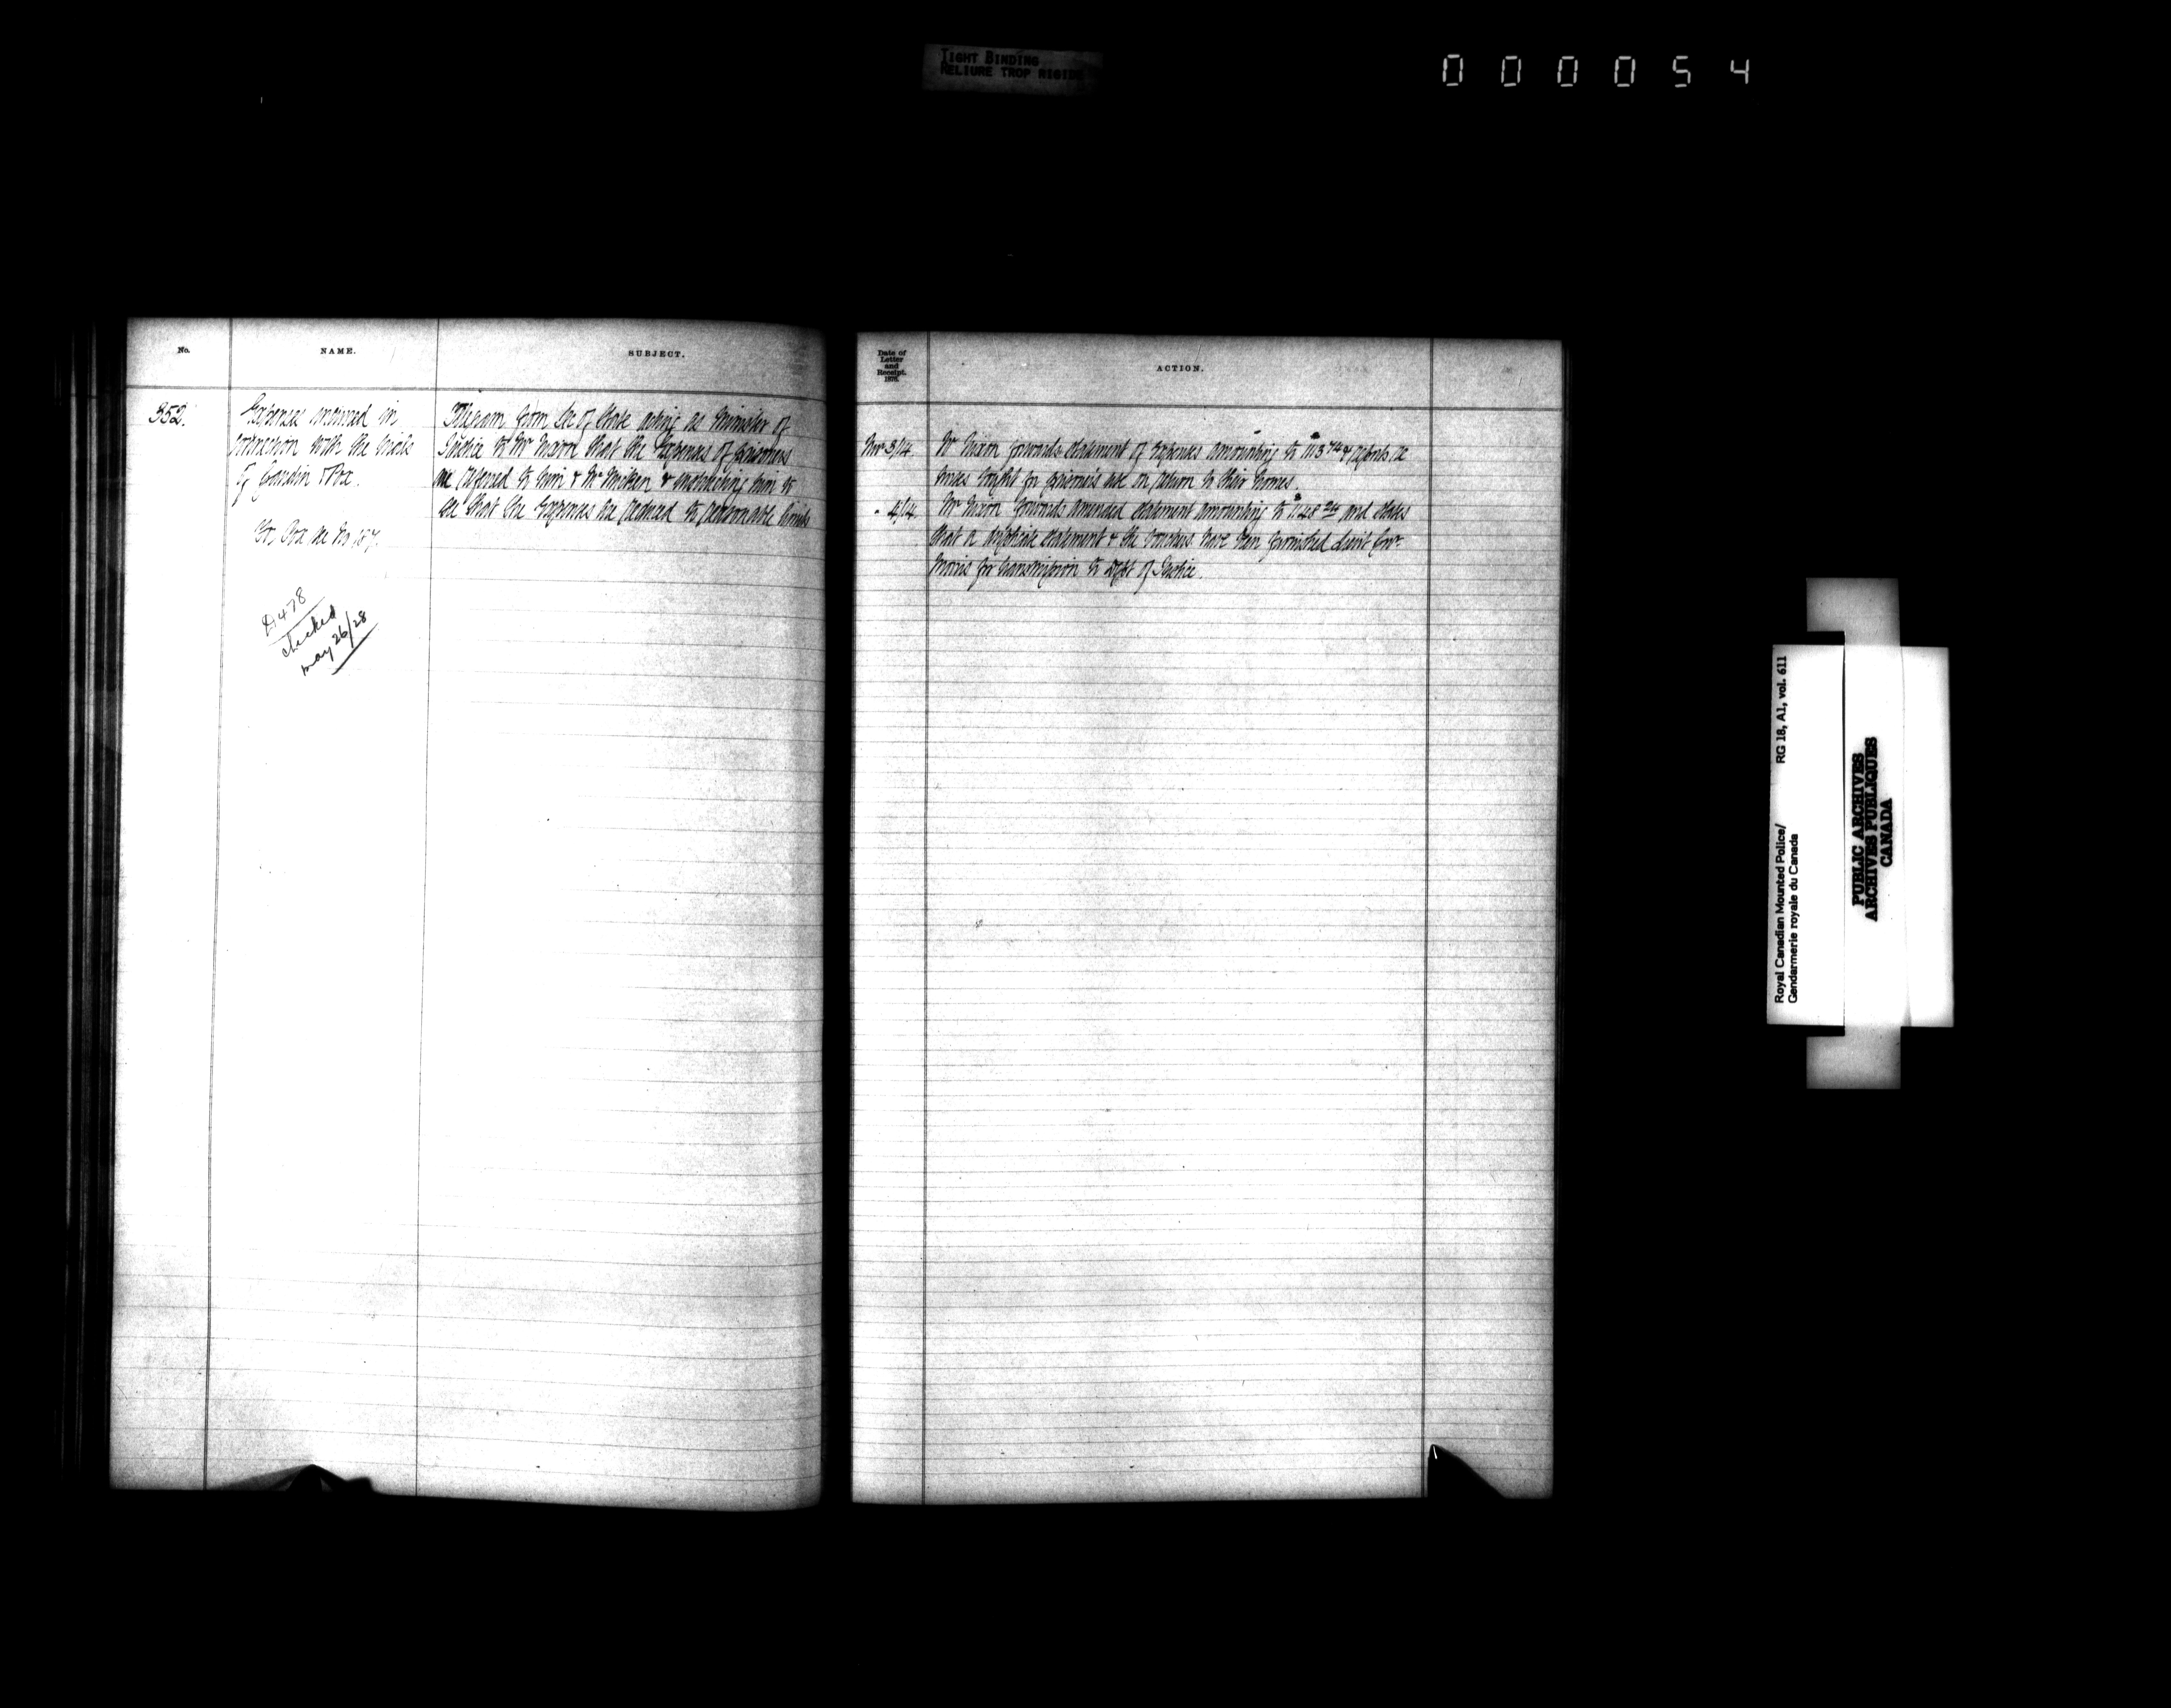 TIGHT BINDING
RELIURE TROP RIGIDE
000054
No.
NAME.
SUBJECT.
352.
Expenses incurred in
connection with the trials
of Gaudin & Fox.
Fox see No 187.
D478
checked
May 26/28
Telegram from Sec of State acting as Minister of
Justice to Mr Nixon that the Expenses of prisoners
are referred to him & Mr McMicken & instructing him to
see that the Expenses be reduced to reasonable limits
Date of
Letter
and
Receipt.
1876.
ACTION.
Nov 3/14.
Mr Nixon forwards statement of Expenses amounting to & reports re
bought for prisoners use on return to their homes.
" 4/14.
Mr Nixon forwards amended statement amounting to and states
that a duplicate statement & the vouchers have been furnished Lieut Gov.
Morris for transmission to Dept of Justice.
Royal Canadian Mounted Police/
Gendarmerie royale du Canada
RG 18, A1, vol. 611
PUBLIC ARCHIVES
ARCHIVES PUBLIQUES
CANADA